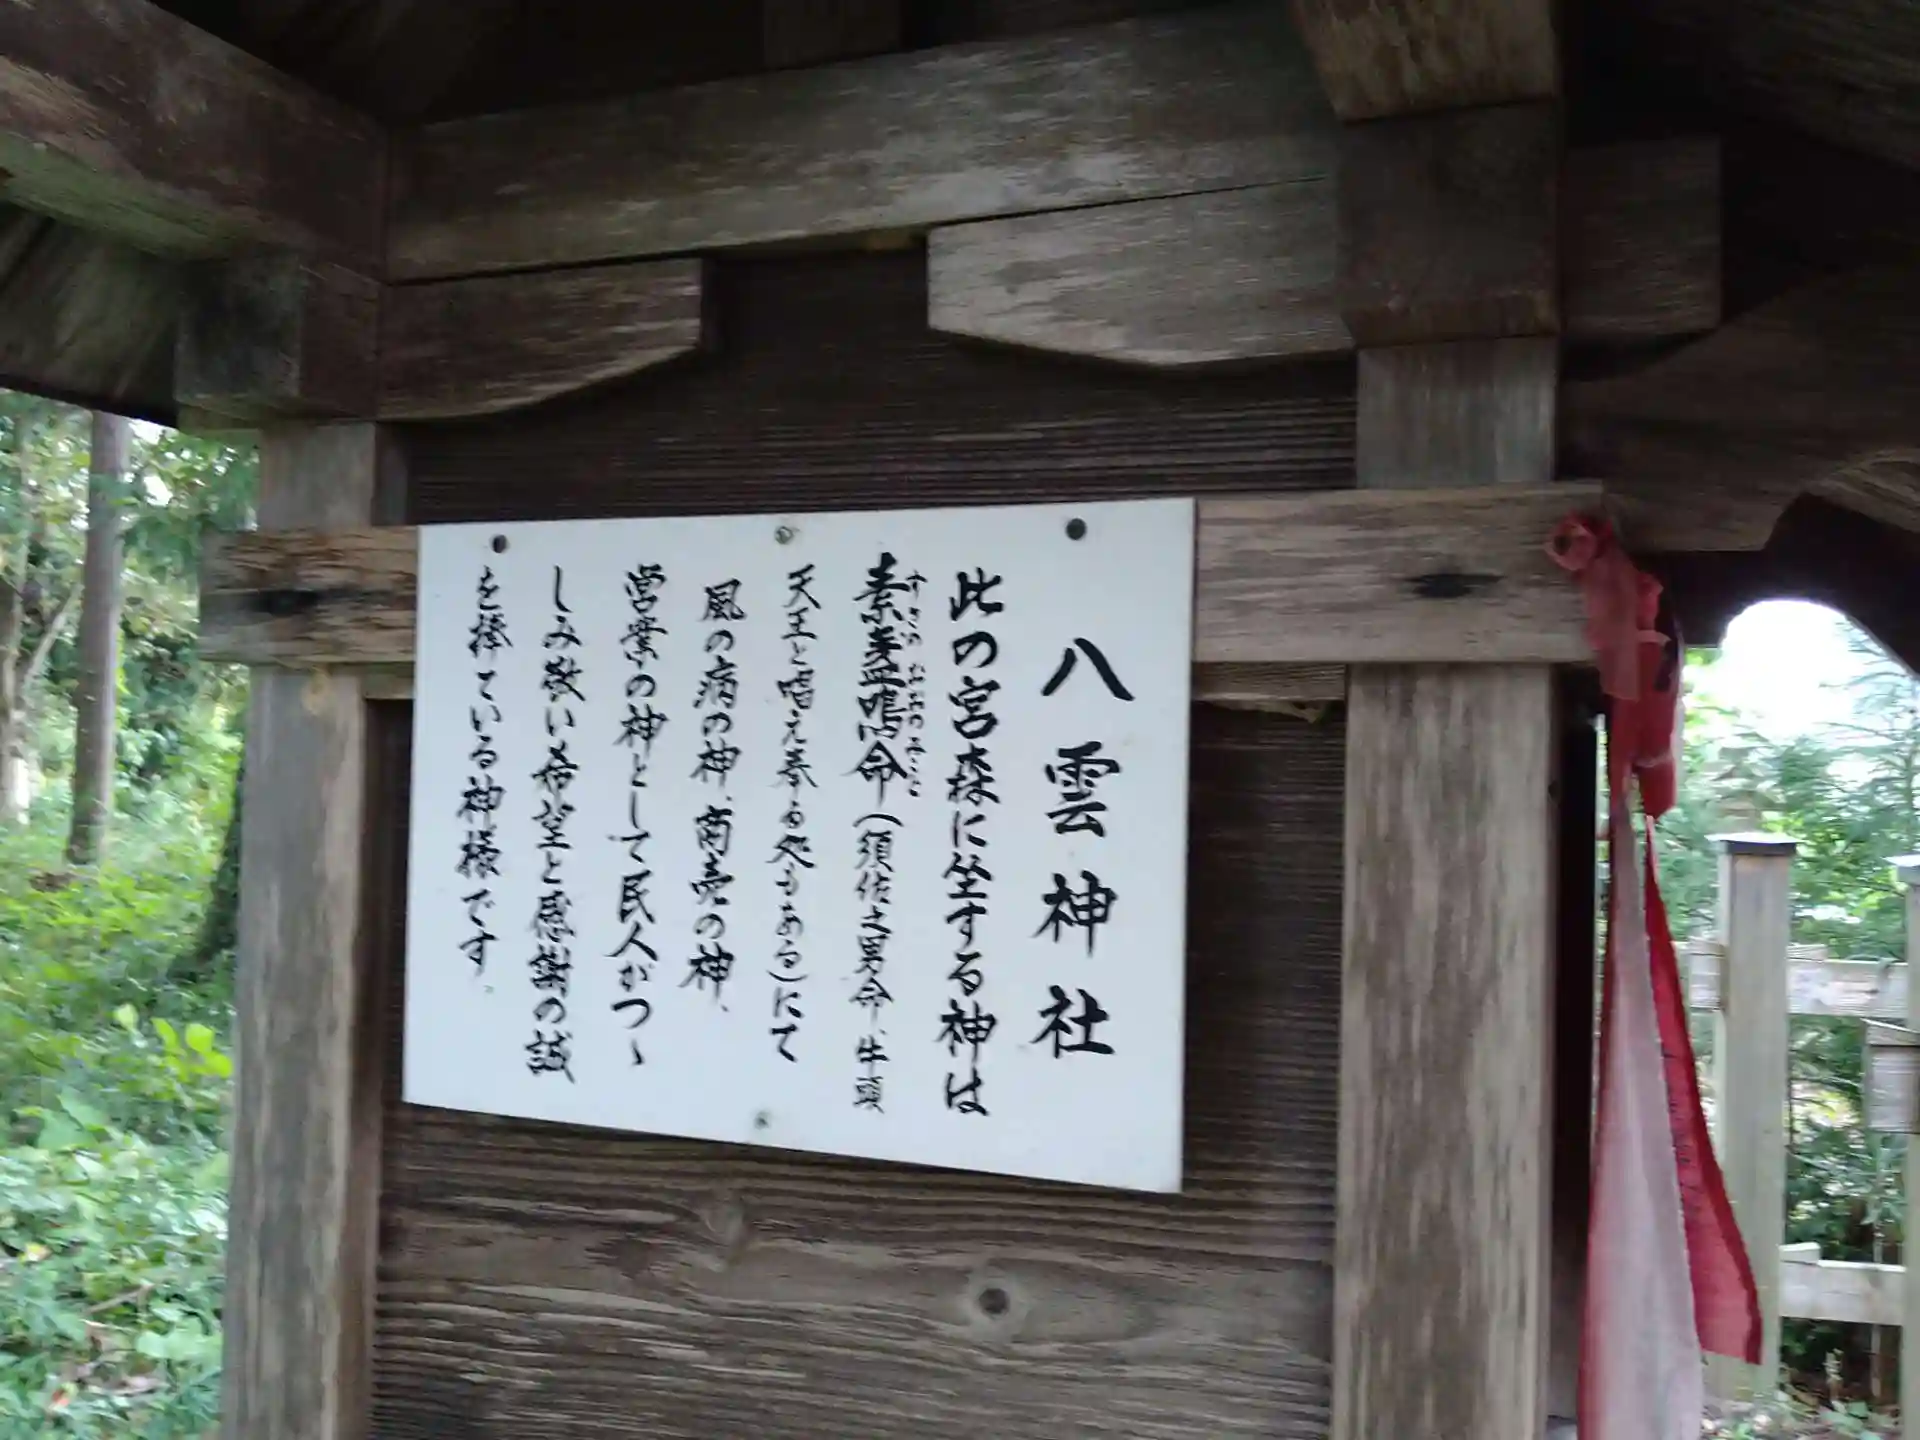 八雲神社
此の宮森に坐する神は
素盞嗚命(須佐之男命、牛頭
すさの おおおのみこと
天王と唱え奉る処もある)にて
風の病の神、商売の神、
営業の神として民人がつゝ
しみ敬い希望と感謝の誠
を捧ている神様です。